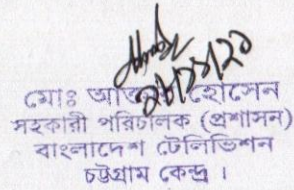 মোঃ হোসেন
সহকারী পরিচালক (প্রশাসন)
বাংলাদেশ টেলিভিশন
চট্টগ্রাম কেন্দ্র ।